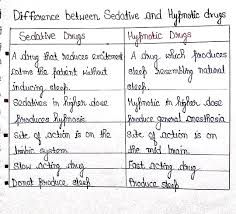 Difference between Sedative and Hypnotic drugs
Sedative Drugs
Hypnotic Drugs
A drug that reduces excitement
calms the patient without
inducing sleep.
A drug which produces
sleep resembling natural
sleep.
Sedatives in higher dose
produces hypnosis
Hypnotic in higher dose
produce general anesthesia
Site of action is on the
limbic system
Site of action is on
the mid brain
Slow acting drug
Fast acting drug
Donot produce sleep
Produce sleep